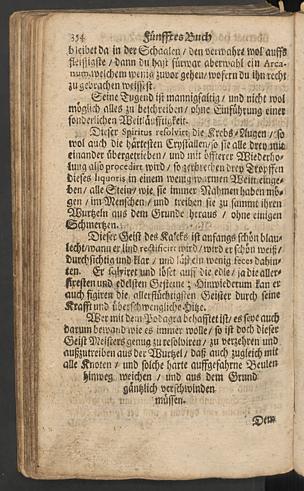 354 Fünfftes Buch
bleibet da in der Schaalen / den verwahre wol auffs
fleissigste / dann du hast fürwar aberwahl ein Arca-
num, welchem wenig zuvor gehen / wofern du ihn recht
zu gebrachen weissest.
Seine Tugend ist mannigfaltig / und nicht wol
möglich alles zu beschreiben / ohne Einführung einer
sonderlichen Weitläufftigkeit.
Dieser Spiritus resolvirt die Krebs-Augen / so
wol auch die härtesten Crystallen / so sie alle drey mit
einander übergetrieben / und mit öffterer Wiederho-
lung also procedirt wird / so gethan drey Tropffen
dieses liquoris in einem wenig warmen Wein einge-
ben / alle Stein / wie sie immer Nahmen haben mö-
gen / im Menschen / und treiben sie zu sammt ihren
Wurtzeln aus dem Grunde heraus / ohne einigen
Schmertzen.
Dieser Geist des Kalcks ist anfangs schön blau-
lecht / wann er lind rectificirt wird / wird er schön weiß /
durchsichtig und klar / und läst ein wenig feces dahin-
ten. Er solviret und löset auff die edle / ja die aller-
firesten und edelsten Gesteine ; Hinwiederum kan er
auch figiren die allerflüchtigsten Geister durch seine
Krafft und überschwengliche Hitze.
Wer mit dem Podagra behafftet ist / es seye auch
darum bewand wie es immer wolle / so ist doch dieser
Geist Meisters genug zu resolviren / zu verzehren und
außzutreiben aus der Wurtzel / daß auch zugleich mit
alle Knoten / und solche harte auffgefahrne Beulen
hinweg weichen / und aus dem Grund
gäntzlich verschwinden
müssen.
Dem